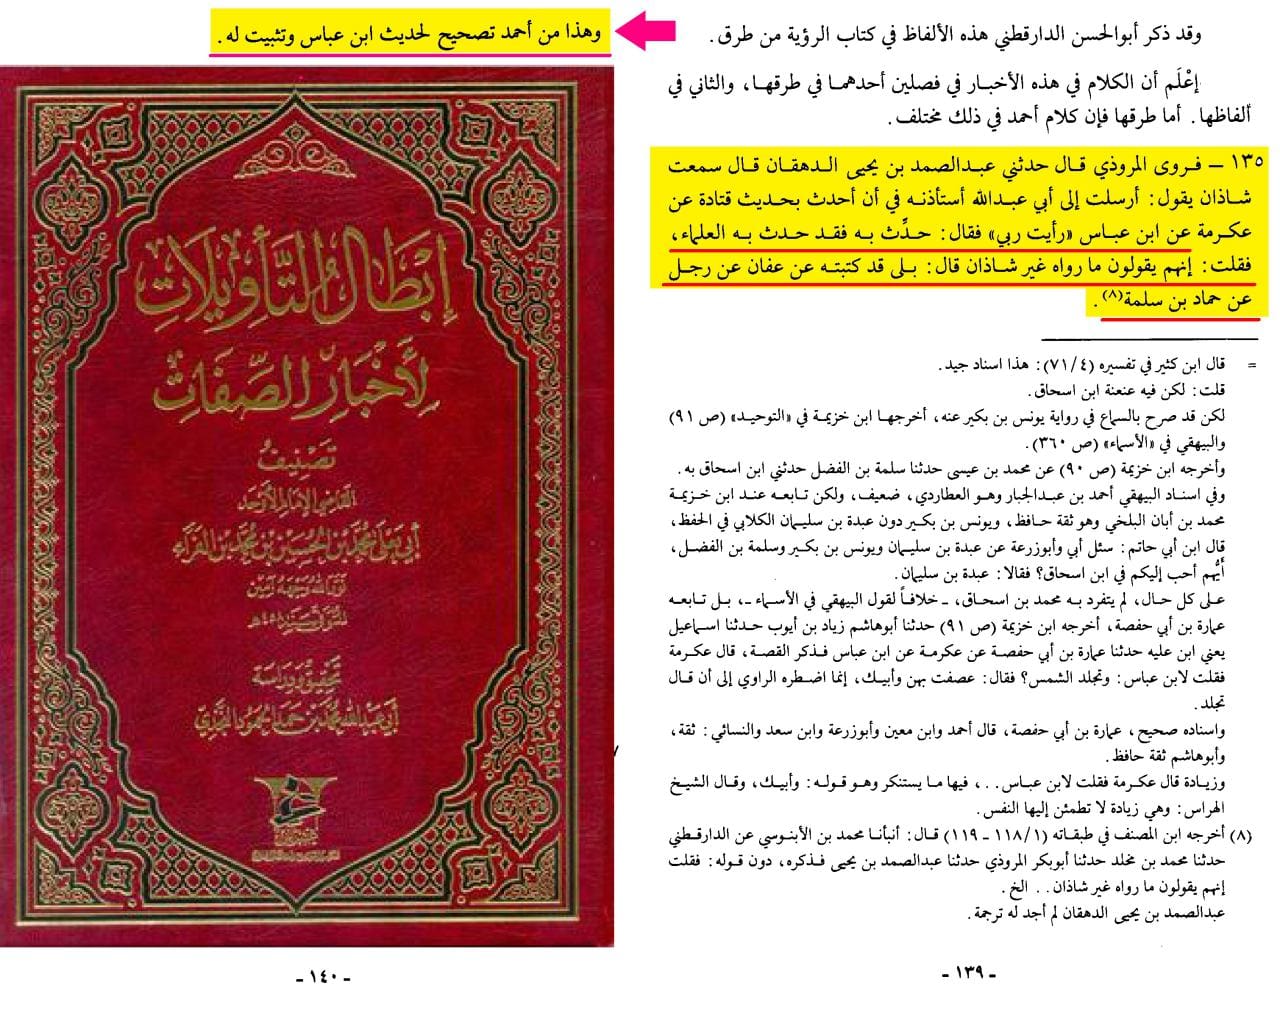 وقد ذكر أبوالحسن الدارقطني هذه الألفاظ في كتاب الرؤية من طرق.
إعْلَم أن الكلام في هذه الأخبار في فصلين أحدهما في طرقها، والثاني في
ألفاظها. أما طرقها فإن كلام أحمد في ذلك مختلف.
١٣٥ – فروى المروذي قال حدثني عبدالصمد بن يحيى الدهقان قال سمعت
شاذان يقول: أرسلت إلى أبي عبدالله أستأذنه في أن أحدث بحديث قتادة عن
عكرمة عن ابن عباس «رأيت ربي» فقال: حدِّث به فقد حدث به العلماء،
فقلت: إنهم يقولون ما رواه غير شاذان قال: بلى قد كتبته عن عفان عن رجل
عن حماد بن سلمة(٨).
= قال ابن كثير في تفسيره (٧١/٤): هذا اسناد جيد.
قلت: لكن فيه عنعنة ابن اسحاق.
لكن قد صرح بالسماع في رواية يونس بن بكير عنه، أخرجها ابن خزيمة في «التوحيد» (ص ٩١)
والبيهقي في «الأسماء» (ص ٣٦٠).
وأخرجه ابن خزيمة (ص ٩٠) عن محمد بن عيسى حدثنا سلمة بن الفضل حدثني ابن اسحاق به.
وفي اسناد البيهقي أحمد بن عبدالجبار وهو العطاردي، ضعيف، ولكن تابعه عند ابن خزيمة
محمد بن أبان البلخي وهو ثقة حافظ، ويونس بن بكير دون عبدة بن سليمان الكلابي في الحفظ،
قال ابن أبي حاتم: سئل أبي وأبوزرعة عن عبدة بن سليمان ويونس بن بكير وسلمة بن الفضل،
أيُّهم أحب إليكم في ابن اسحاق؟ فقالا: عبدة بن سليمان.
على كل حال، لم يتفرد به محمد بن اسحاق، ـ خلافاً لقول البيهقي في الأسماء ـ، بل تابعه
عمارة بن أبي حفصة، أخرجه ابن خزيمة (ص ٩١) حدثنا أبوهاشم زياد بن أيوب حدثنا اسماعيل
يعني ابن عليه حدثنا عمارة بن أبي حفصة عن عكرمة عن ابن عباس فذكر القصة، قال عكرمة
فقلت لابن عباس: وتجلد الشمس؟ فقال: عصفت بهن وأبيك، إنما اضطره الراوي إلى أن قال
تجلد.
واسناده صحيح، عمارة بن أبي حفصة، قال أحمد وابن معين وأبوزرعة وابن سعد والنسائي: ثقة،
وأبوهاشم ثقة حافظ.
وزيادة قال عكرمة فقلت لابن عباس..، فيها ما يستنكر وهو قوله: وأبيك، وقال الشيخ
الهراس: وهي زيادة لا تطمئن إليها النفس.
(٨) أخرجه ابن المصنف في طبقاته (١١٨/١ ـ ١١٩) قال: أنبأنا محمد بن الأبنوسي عن الدارقطني
حدثنا محمد بن مخلد حدثنا أبوبكر المروذي حدثنا عبدالصمد بن يحيى فذكره، دون قوله: فقلت
إنهم يقولون ما رواه غير شاذان.. الخ.
عبدالصمد بن يحيى الدهقان لم أجد له ترجمة.
- ١٣٩ -
وهذا من أحمد تصحيح لحديث ابن عباس وتثبيت له.
إبطال التأويلات
لأخبار الصفات
تصنيف
القاضي الإمام الأوحد
أبي يعلى محمد بن الحسين بن محمد بن الفراء
المتوفى سنة ٤٥٨هـ
تحقيق ودراسة
أبي عبدالله محمد بن حمد الحمود النجدي
- ١٤٠ -